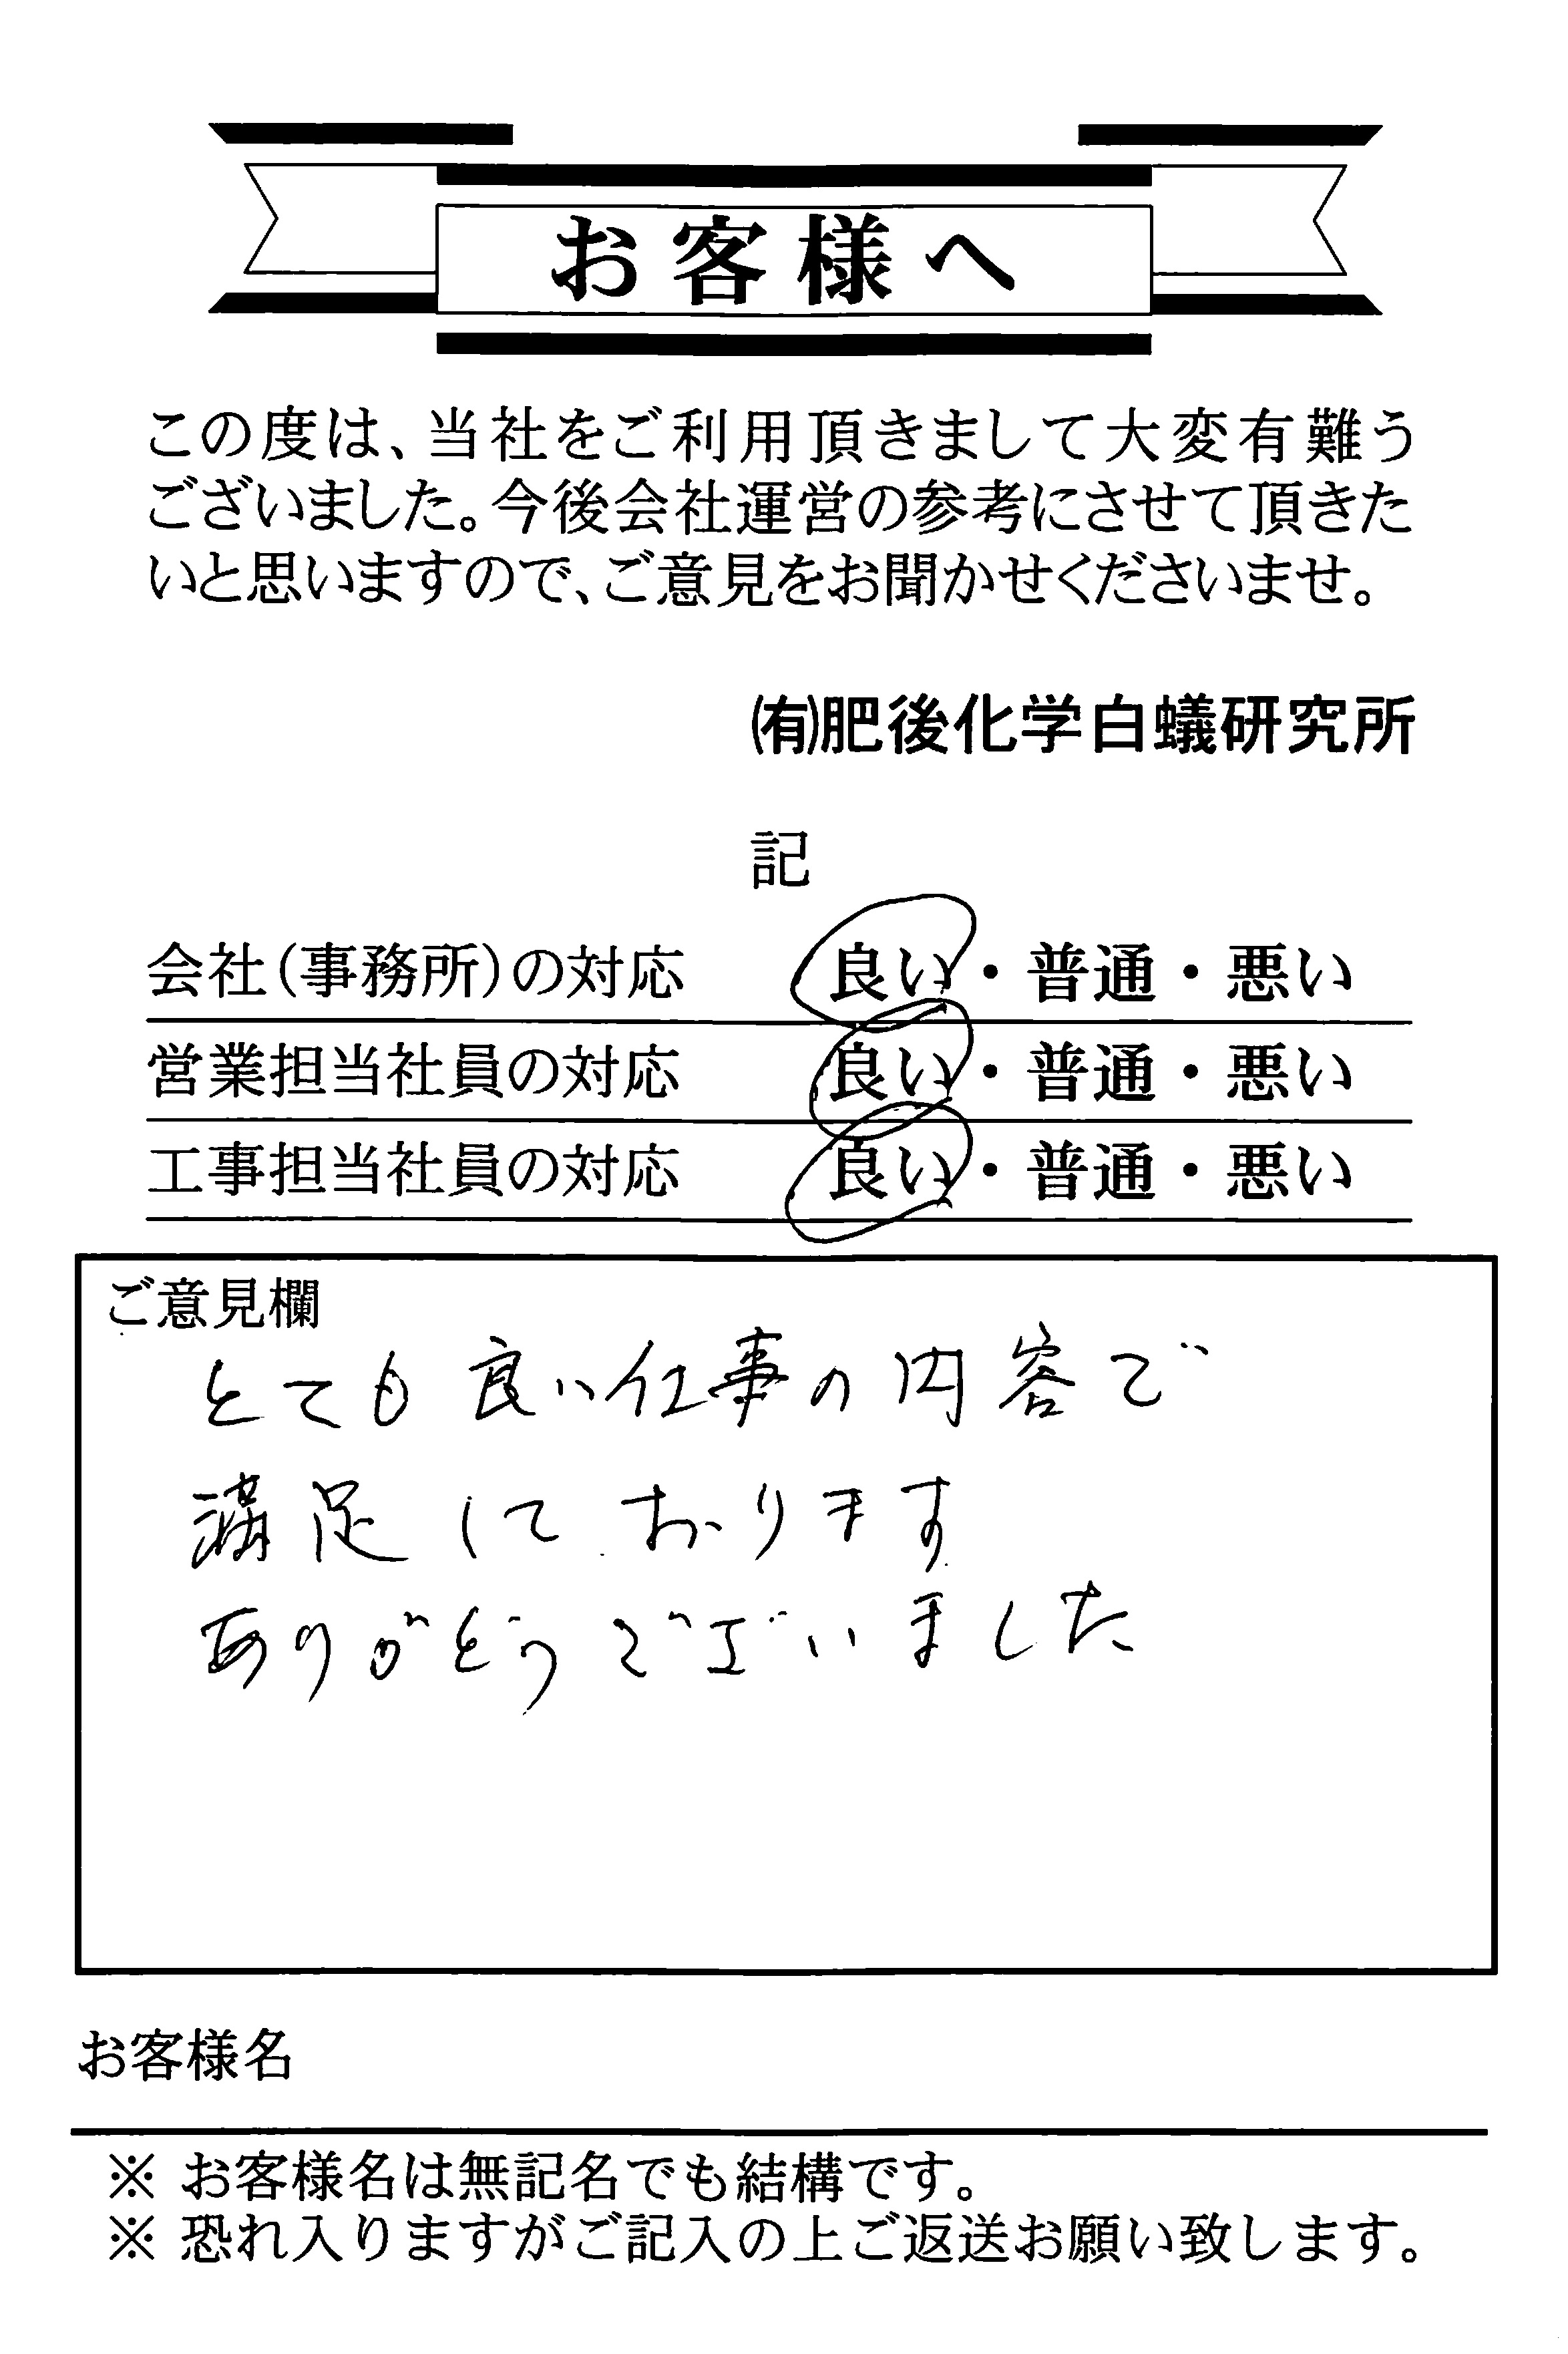 お客様へ
この度は、当社をご利用頂きまして大変有難う
ございました。今後会社運営の参考にさせて頂きた
いと思いますので、ご意見をお聞かせくださいませ。
㈲肥後化学白蟻研究所
記
会社(事務所)の対応 良い・普通・悪い
営業担当社員の対応 良い・普通・悪い
工事担当社員の対応 良い・普通・悪い
ご意見欄
とても良い仕事の内容で
満足しております
ありがどうございました
お客様名
※ お客様名は無記名でも結構です。
※ 恐れ入りますがご記入の上ご返送お願い致します。